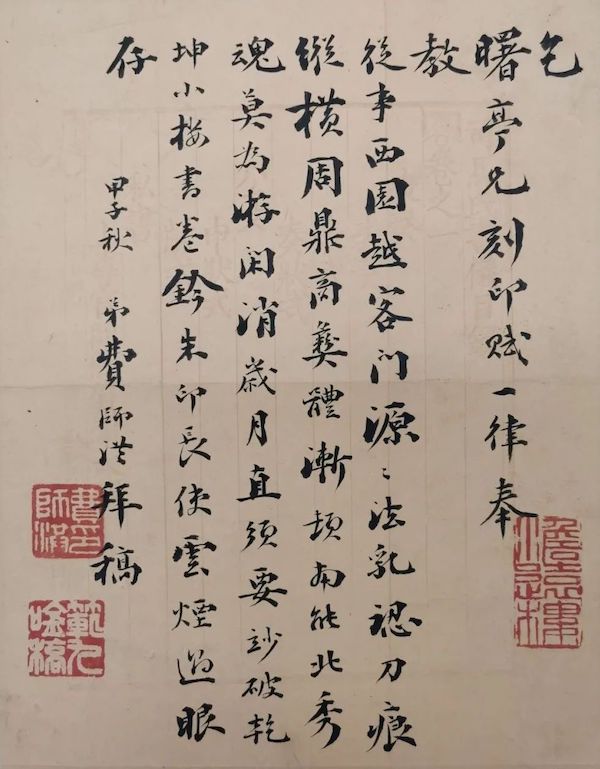 乞
曙亭兄刻印賦一律奉
教
從事西園越客門源〻法乳認刀痕
縱橫周鼎商彝體漸頓南能北秀
魂莫為游閑消歲月直須要眇破乾
坤小樓書卷鈐朱印長使雲煙過眼
存
甲子秋 弟費師洪拜稿
費
師洪
範九
吟稿